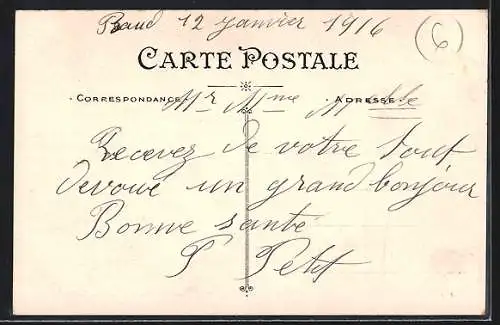 Baud 12 janvier 1916
(6)
CARTE POSTALE
CORRESPONDANCE ADRESSE
Mr Mme Melle
Recevez de votre tout
devoué un grand bonjour
Bonne santé
P Petit